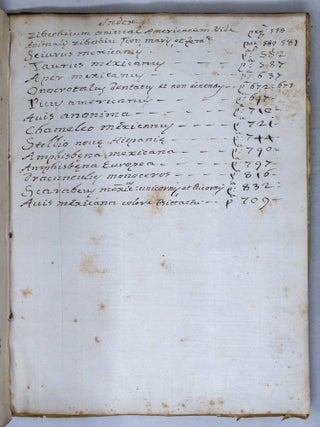 Index
Zibethicum animal Americanum Vide pag 538
Animalj zibethici Fœm. marj et
Sciurus mexicanus p. 582
Taurus mexicanus p. 587
Aper mexicanus p. 637
Onocrotalus dentatus et non dentatus p. 672. 673
Picus americanus p. 697
Auis anonima p. 710
Chameleo mexicanus p. 721
Stellio nouę Hispanię p. 744
Amphisbena mexicana p. 790
Amphisbena Europea p. 797
Dracunculus monoceros p. 816
Scarabeus mexic. unicornis et Bicornis p. 832
Auis mexicana colore Psittachi p. 709